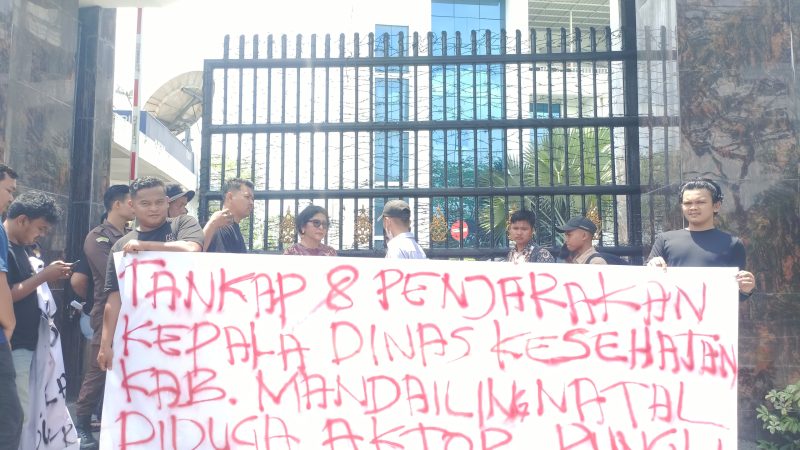 TANKAP & PENJARAKAN
KEPALA DINAS KESEHATAN
KAB. MANDAILING NATAL
DIDUGA AKTOR PUNGLI